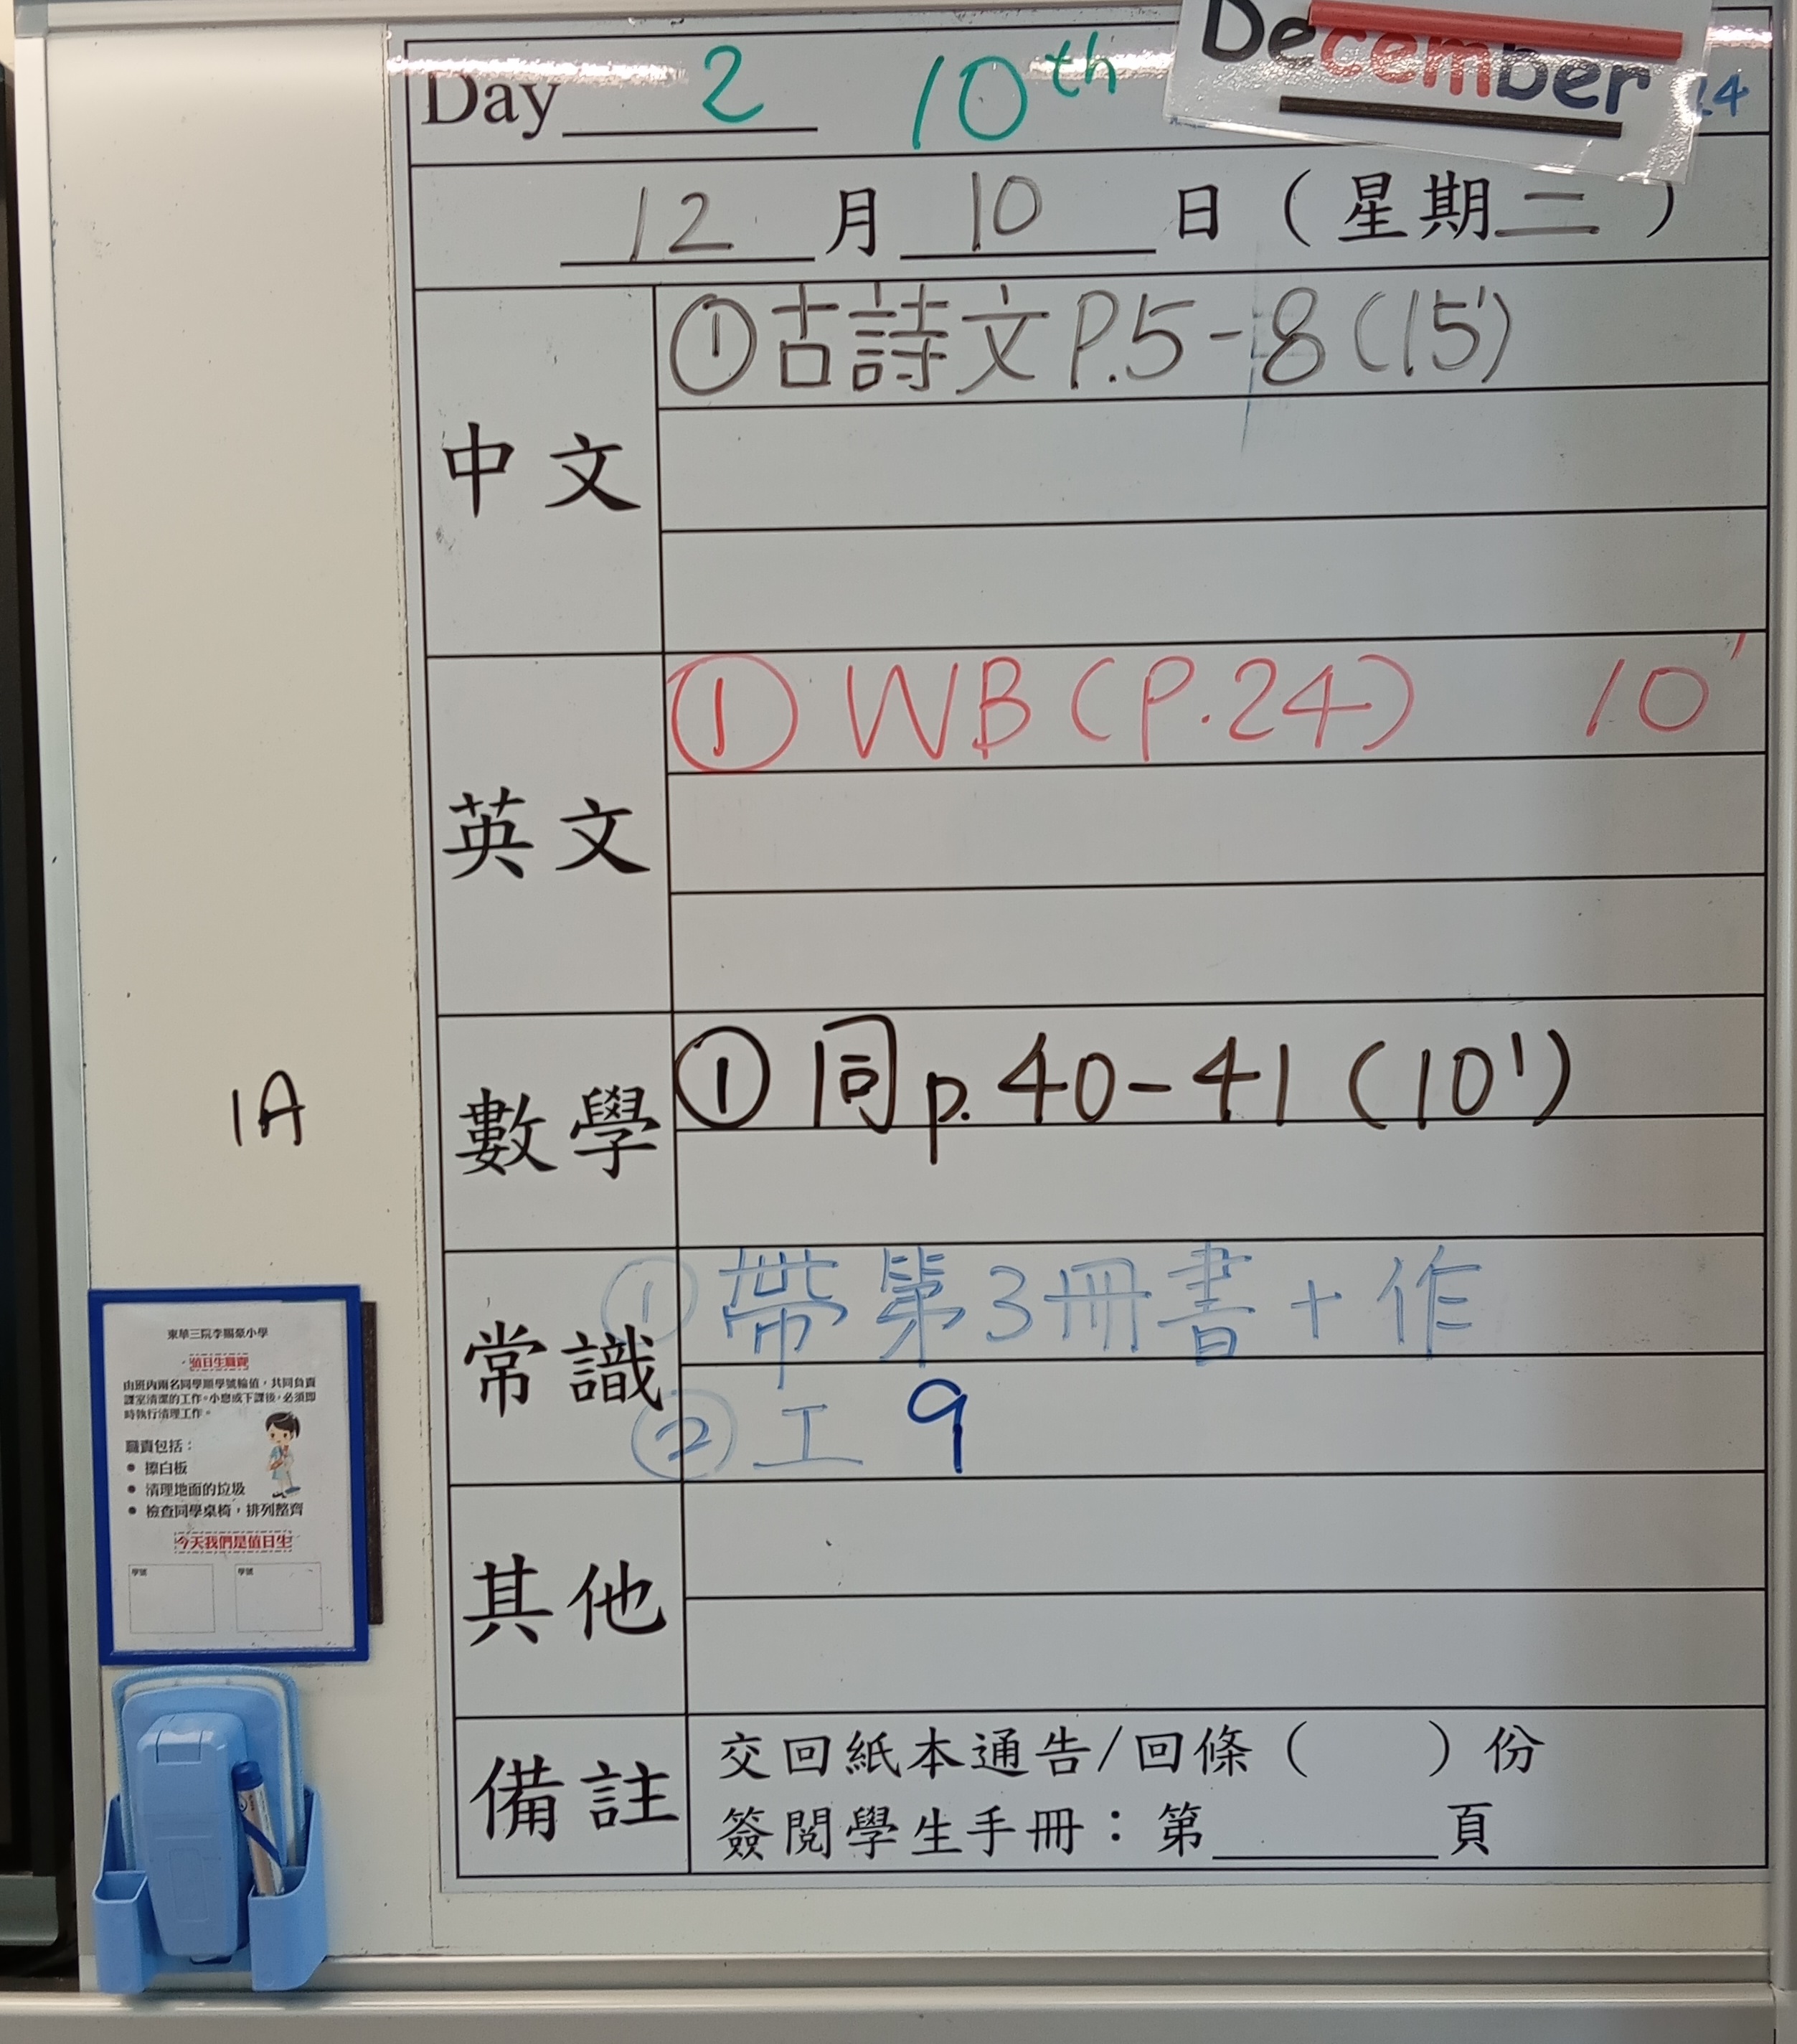 Day 2 10th December 24
12 月 10 日 ( 星期二 )
中文
①古詩文P.5-8(15')
英文
① WB (P.24) 10'
數學
① 同 p. 40-41 (10')
常識
① 帶第3冊書+作
② 工 9
其他
備註
交回紙本通告/回條 ( ) 份
簽閱學生手冊：第 頁
1A
東華三院李賜豪小學
值日生職責
由班內兩名同學順學號輪值，共同負責
課室清潔的工作。小息或下課後，必須即
時執行清理工作。
職責包括：
● 擦白板
● 清理地面的垃圾
● 檢查同學桌椅，排列整齊
今天我們是值日生
學號 學號